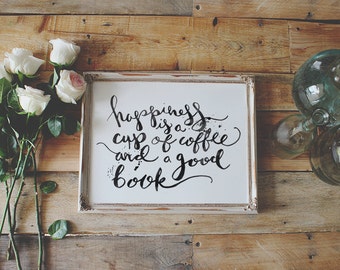 happiness
is a
cup of coffee
and a good
book